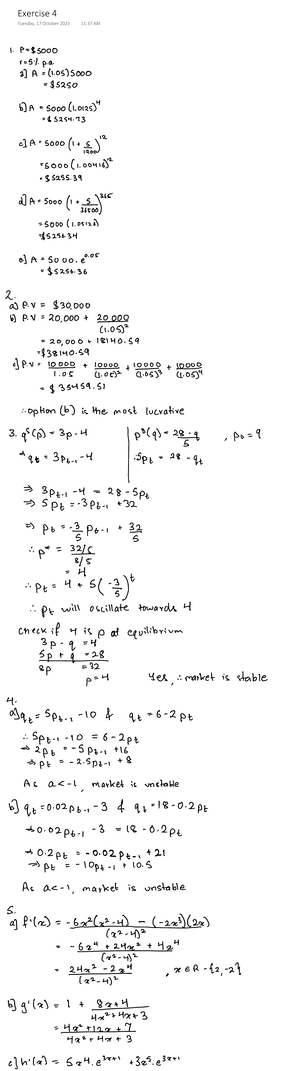 Exercise 4
Tuesday, 17 October 2023 11:37 AM
1. P = $5000
r = 5% p.a
a] A = (1.05) 5000
= $5250
b] A = 5000 (1.0125)^4
= $5254.73
c] A = 5000 (1 + 5/1200)^12
= 5000 (1.00416)^12
= $5255.39
d] A = 5000 (1 + 5/36500)^365
= 5000 (1.05126)
= $5256.34
e] A = 5000. e^0.05
= $5256.36
2.
a) P.V = $30,000
b] P.V = 20,000 + 20 000/(1.05)^2
= 20,000 + 18140.59
= $38140.59
c] P.V = 10000/1.05 + 10000/(1.05)^2 + 10000/(1.05)^3 + 10000/(1.05)^4
= $ 35459.51
∴ option (b) is the most lucrative
3. q^s(p) = 3p - 4 | p^D(q) = 28 - q/5 , p₀ = 9
→ qt = 3pt-1 - 4 | 5pt = 28 - qt
⇒ 3pt-1 - 4 = 28 - 5pt
⇒ 5pt = -3pt-1 + 32
⇒ pt = -3/5 pt-1 + 32/5
∴ p* = 32/5 / 8/5
= 4
∴ pt = 4 + 5(-3/5)^t
∴ pt will oscillate towards 4
check if 4 is p at equilibrium
3p - q = 4
5p + q = 28
8p = 32
p = 4 Yes, ∴ market is stable
4.
a] qt = 5pt-1 - 10 & qt = 6 - 2pt
∴ 5pt-1 - 10 = 6 - 2pt
⇒ 2pt = -5pt-1 + 16
⇒ pt = -2.5pt-1 + 8
As a < -1, market is unstable
b] qt = 0.02pt-1 - 3 & qt = 18 - 0.2pt
→ 0.02pt-1 - 3 = 18 - 0.2pt
→ 0.2pt = -0.02pt-1 + 21
⇒ pt = -10pt-1 + 10.5
As a < -1, market is unstable
5.
a] f'(x) = -6x²(x²-4) - (-2x³)(2x) / (x²-4)²
= -6x⁴ + 24x² + 4x⁴ / (x²-4)²
= 24x² - 2x⁴ / (x²-4)² , x ∈ R - {2, -2}
b] g'(x) = 1 + 8x+4 / 4x²+4x+3
= 4x²+12x+7 / 4x²+4x+3
c] h'(x) = 5x⁴. e^3x+1 + 3x⁵. e^3x+1